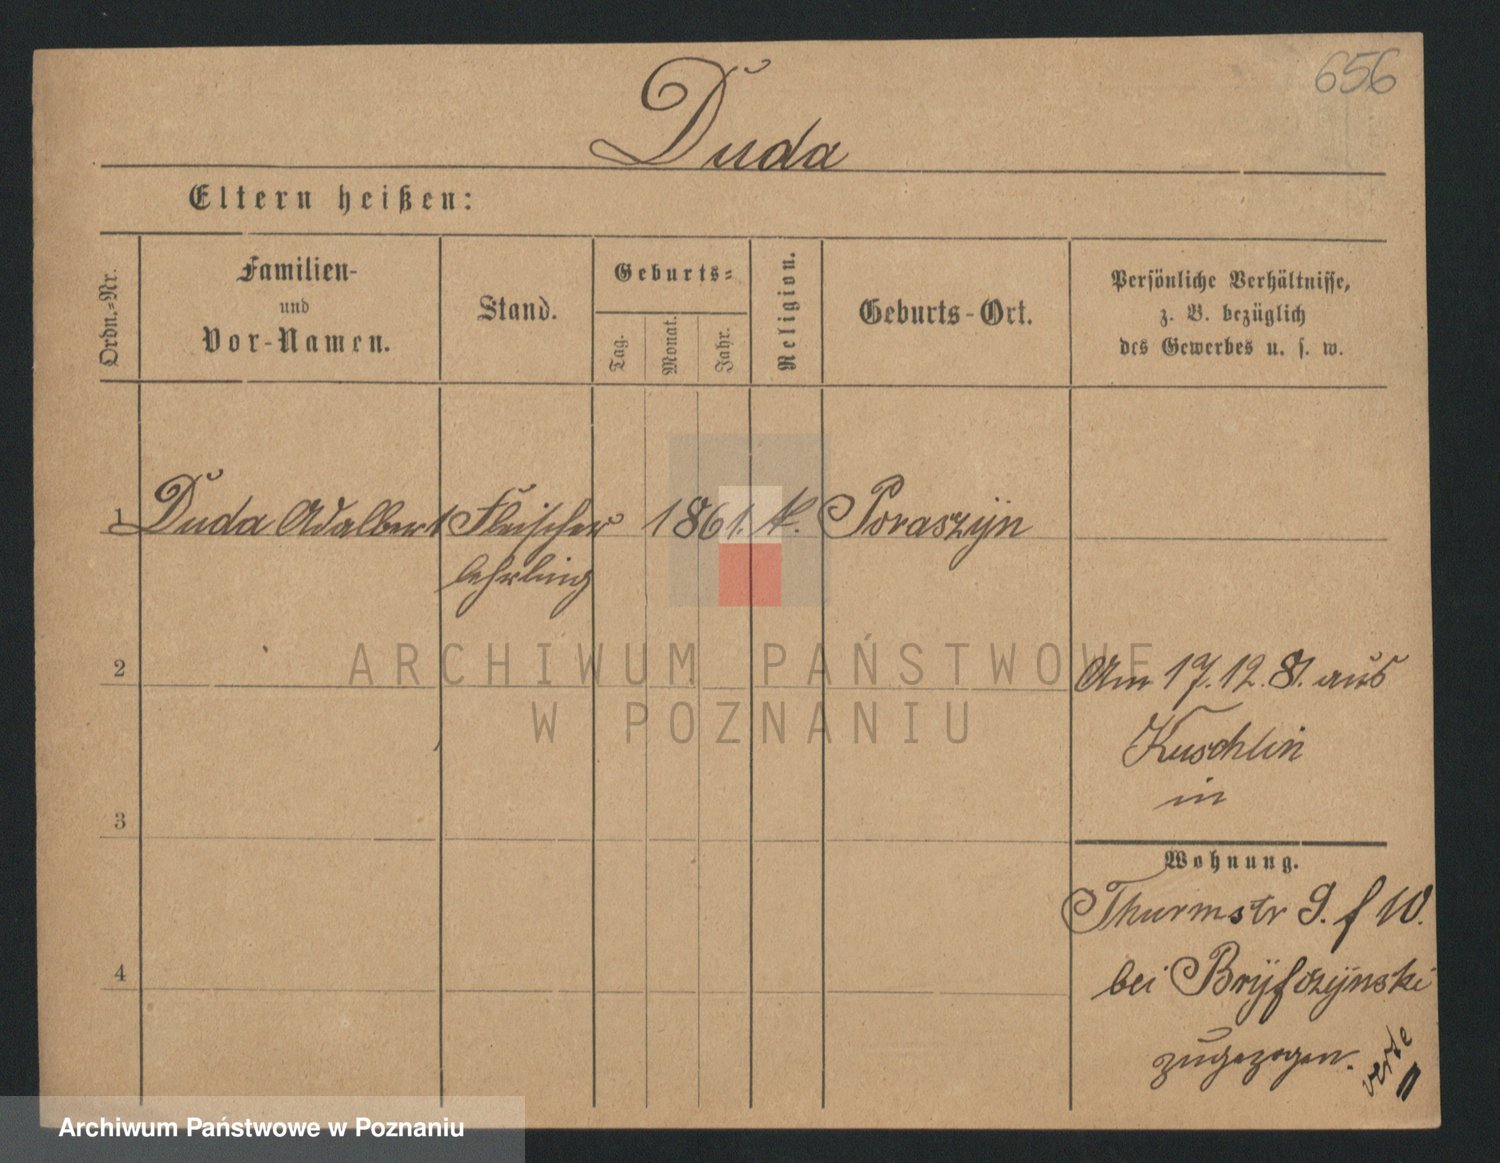 656
Duda
Eltern heißen:
Ordn.-Nr.
Familien-
und
Vor-Namen.
Stand.
Geburts-
Tag.
Monat.
Jahr.
Religion.
Geburts-Ort.
Persönliche Verhältnisse,
z. B. bezüglich
des Gewerbes u. s. w.
1 Duda Adalbert Fleischer 1861. k. Poraszyn
lehrling
ARCHIWUM PAŃSTWOWE
W POZNANIU
2
Am 17.12.81. aus
Kuschlin
in
3
Wohnung.
Thurmstr 9. f W.
bei
4
zugezogen.
verte
Archiwum Państwowe w Poznaniu